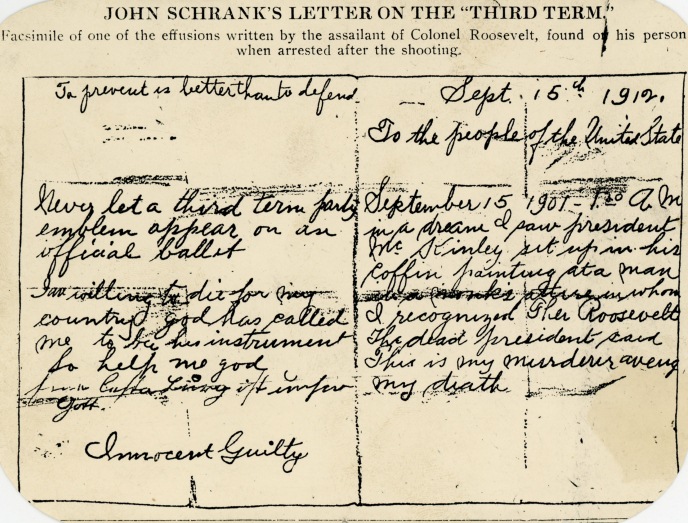 JOHN SCHRANK'S LETTER ON THE "THIRD TERM"
Facsimile of one of the effusions written by the assailant of Colonel Roosevelt, found on his person
when arrested after the shooting.
To prevent is better than to defend.
Never let a third term party
emblem appear on an
official ballot
I am willing to die for my
country god has called
me to be his instrument
So help me god
Gott.
Innocent Guilty
Sept. 15th 1912.
To the people of the United State
September 15 1901 - 1.30 A.M
in a dream I saw president
Mc Kinley sit up in his
coffin painting at a man
in a monks attire in whom
I recognized Theo Roosevelt
The dead president said
This is my murderer aveng
my death